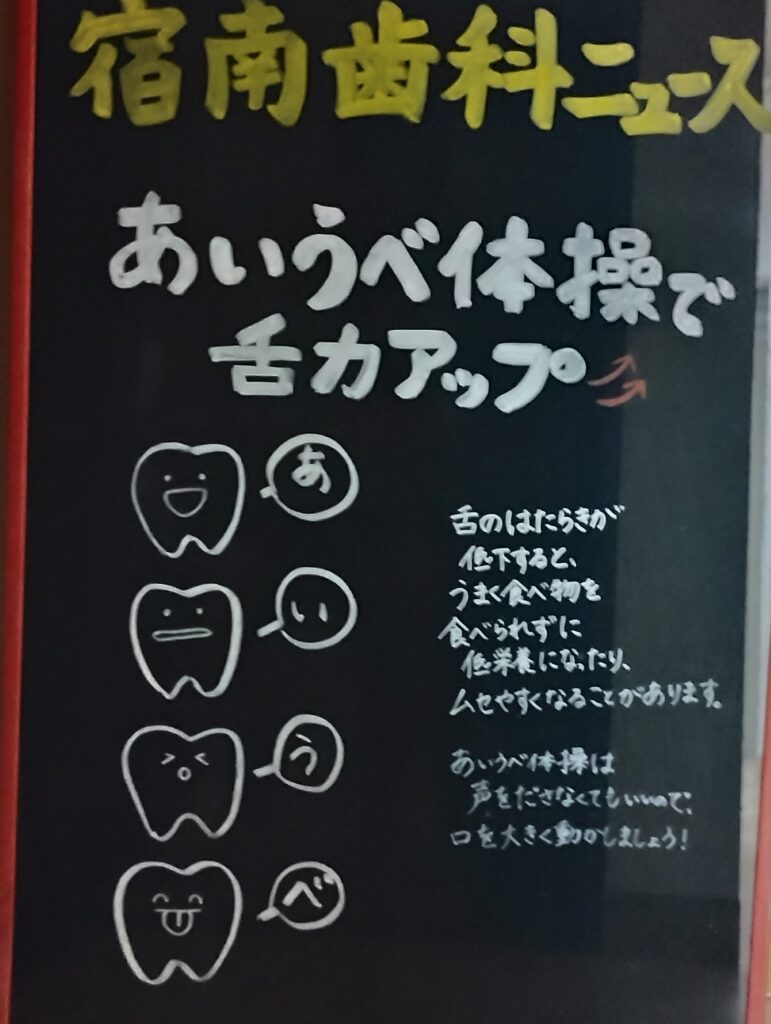 宿南歯科ニュース
あいうべ体操で
舌力アップ
あ
い
う
べ
舌のはたらきが
低下すると、
うまく食べ物を
食べられずに
低栄養になったり、
ムセやすくなることがあります。
あいうべ体操は
声をださなくてもいいので、
口を大きく動かしましょう!